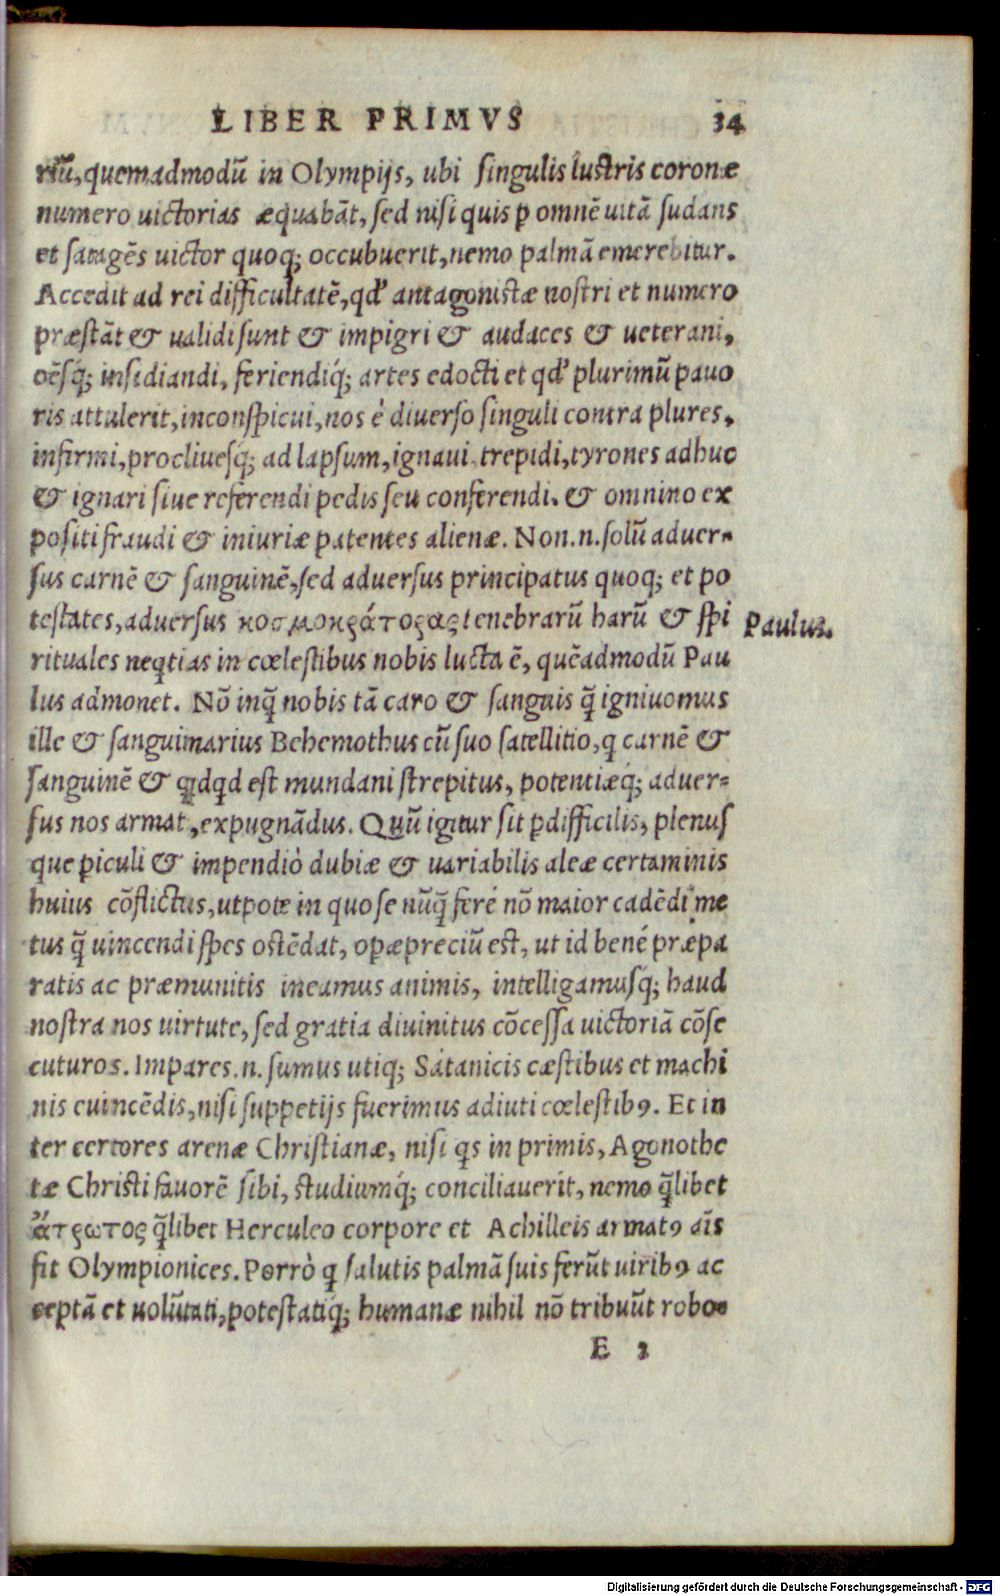 LIBER PRIMVS 34
riū, quemadmodū in Olympijs, ubi singulis lustris coronæ
numero uictorias æquabāt, sed nisi quis p omnē uitā sudans
et satagēs uictor quoq; occubuerit, nemo palmā emerebitur.
Accedit ad rei difficultatē, qd' antagonistæ nostri et numero
præstāt & ualidi sunt & impigri & audaces & ueterani,
oēsq́; insidiandi, feriendiq́; artes edocti et qd' plurimū pauo
ris attulerit, inconspicui, nos è diuerso singuli contra plures,
infirmi, procliuesq́; ad lapsum, ignaui trepidi, tyrones adhuc
& ignari siue referendi pedis seu conferendi. & omnino ex
positi fraudi & iniuriæ patentes alienæ. Non. n. solū aduer-
sus carnē & sanguinē, sed aduersus principatus quoq; et po
testates, aduersus κοσμοκράτορας tenebrarū harū & spi
Paulus.
rituales neqtias in cœlestibus nobis lucta ē, quēadmodū Pau
lus admonet. Nō inq̄ nobis tā caro & sanguis q̄ igniuomus
ille & sanguinarius Behemothus cū suo satellitio, q carnē &
sanguinē & qdqd est mundani strepitus, potentiæq́; aduer-
sus nos armat, expugnādus. Quū igitur sit p̱difficilis, plenus
que p̱iculi & impendiò dubiæ & uariabilis aleæ certaminis
huius cōflictus, utpote in quo se nūq̄ ferè nō maior cadēdi me
tus q̄ uincendi spes ostēdat, opæpreciū est, ut id bené præpa
ratis ac præmunitis ineamus animis, intelligamusq́; haud
nostra nos uirtute, sed gratia diuinitus cōcessa uictoriā cōse
cuturos. Impares. n. sumus utiq; Satanicis cæstibus et machi
nis euincēdis, nisi suppetijs fuerimus adiuti cœlestibꝰ. Et in
ter certores arenæ Christianæ, nisi qs in primis, Agonothe
tæ Christi fauorē sibi, studiumq́; conciliauerit, nemo q̄libet
ἄτρωτος q̄libet Herculeo corpore et Achilleis armatꝰ aīs
fit Olympionices. Porrò q salutis palmā suis ferūt uiribꝰ ac
ceptā et uolūtati, potestatiq́; humanæ nihil nō tribuūt robo-
E 2
Digitalisierung gefördert durch die Deutsche Forschungsgemeinschaft - DFG